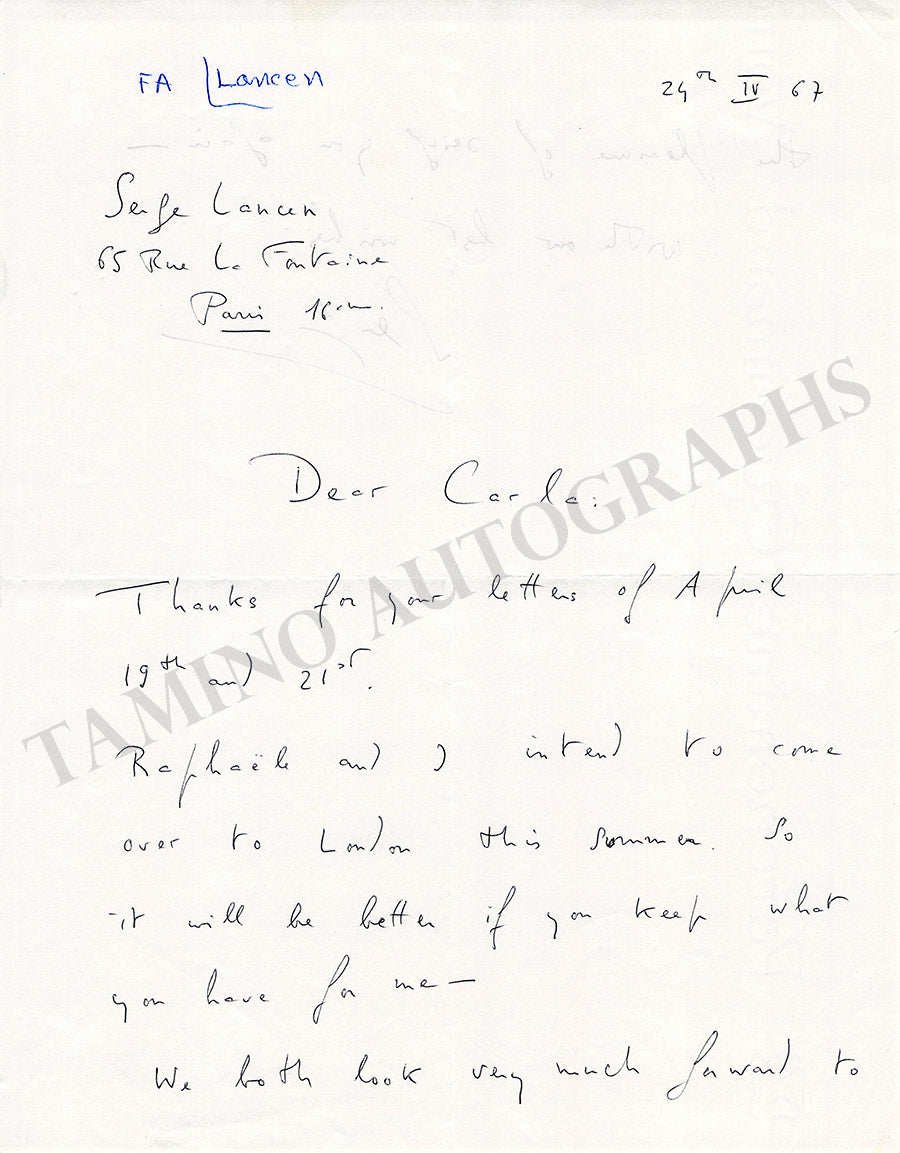 FA Lancen
24th IV 67
Serge Lancen
65 Rue La Fontaine
Paris 16em.
Dear Carla:
Thanks for your letters of April
19th and 21st.
Raphaële and I intend to come
over to London this summer. So
it will be better if you keep what
you have for me —
We both look very much forward to
the pleasure of seing you again —
with our best wishes
TAMINO AUTOGRAPHS